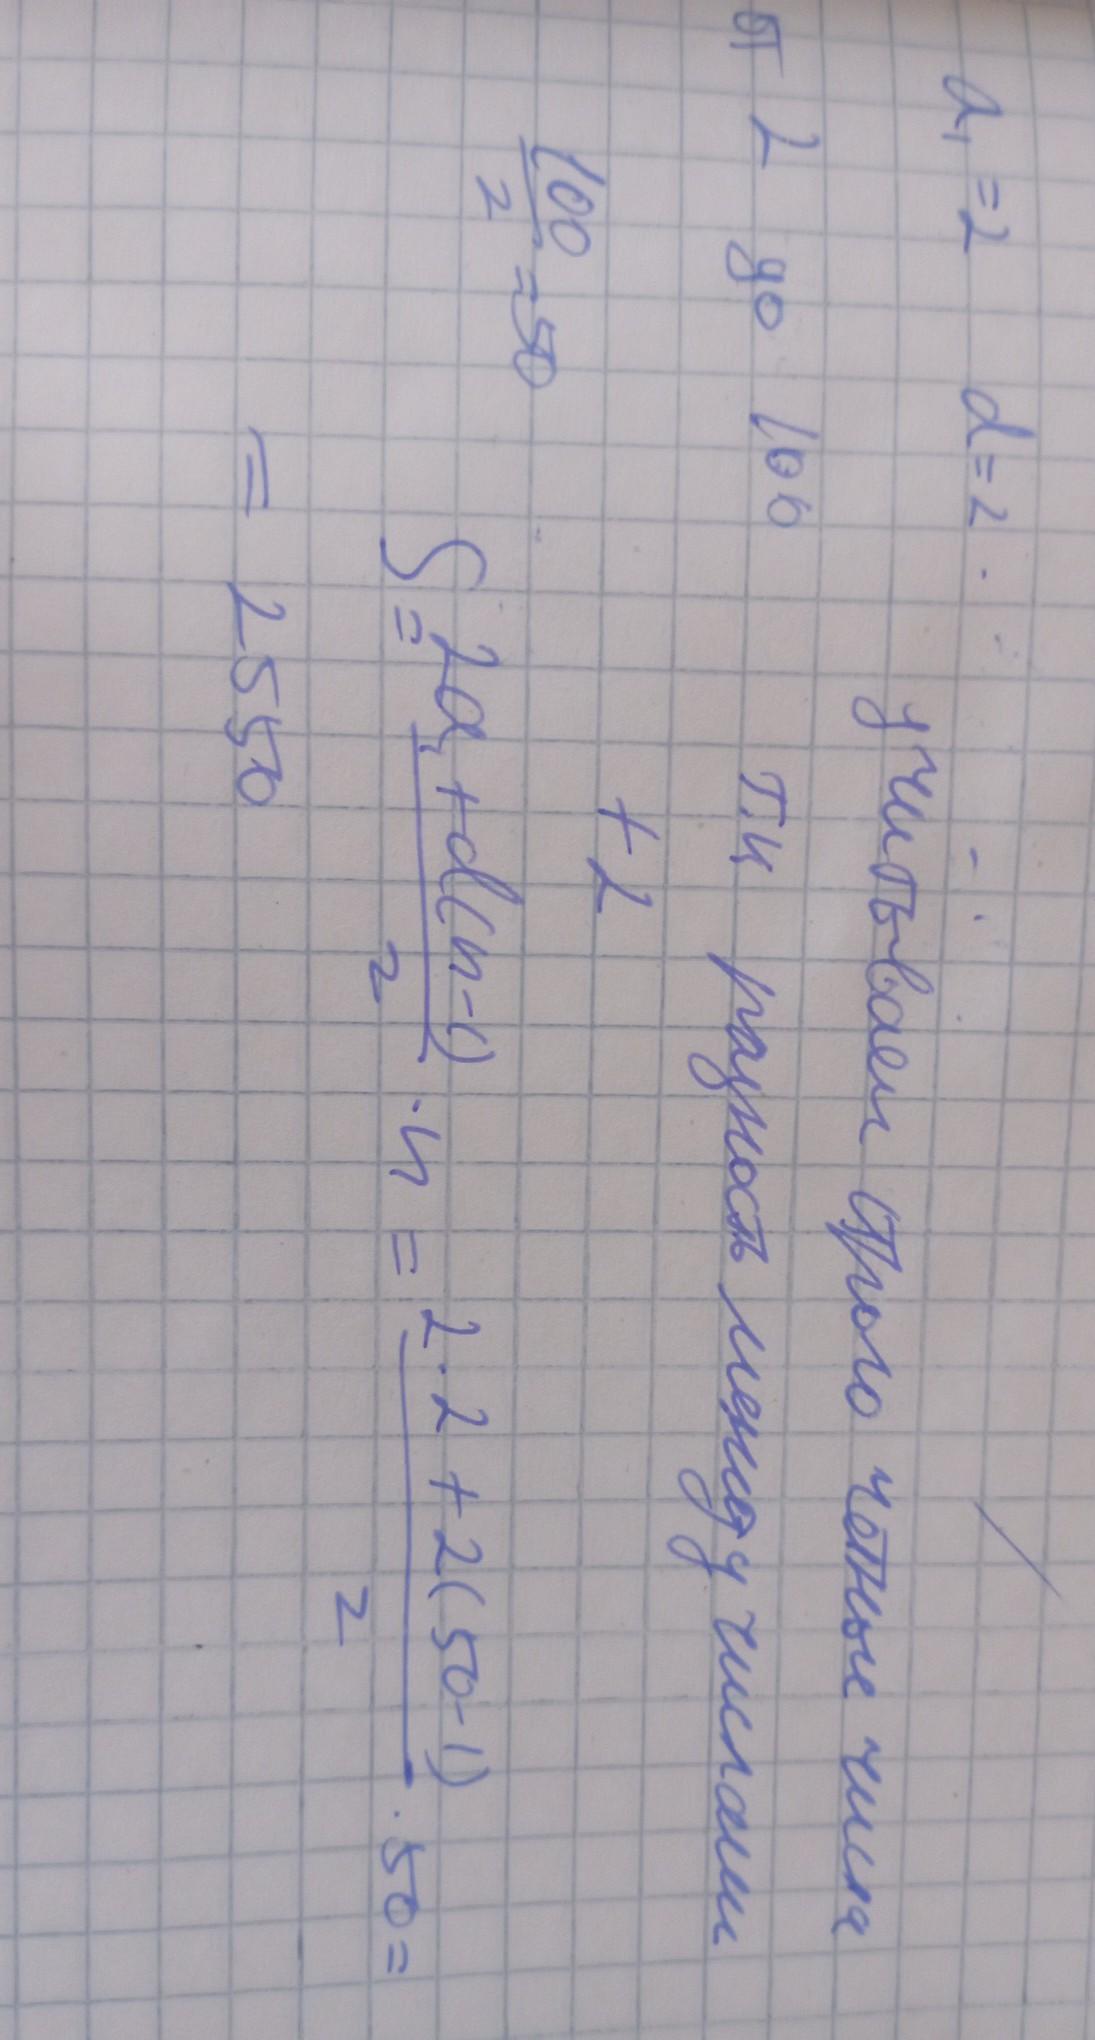 a₁ = 2 d = 2
учитываем строго четные числа
от 2 до 100 т.к разность между числами
+2
100/2 = 50
S = (2a₁ + d(n-1))/2 · n = (2·2 + 2(50-1))/2 · 50 =
= 2550